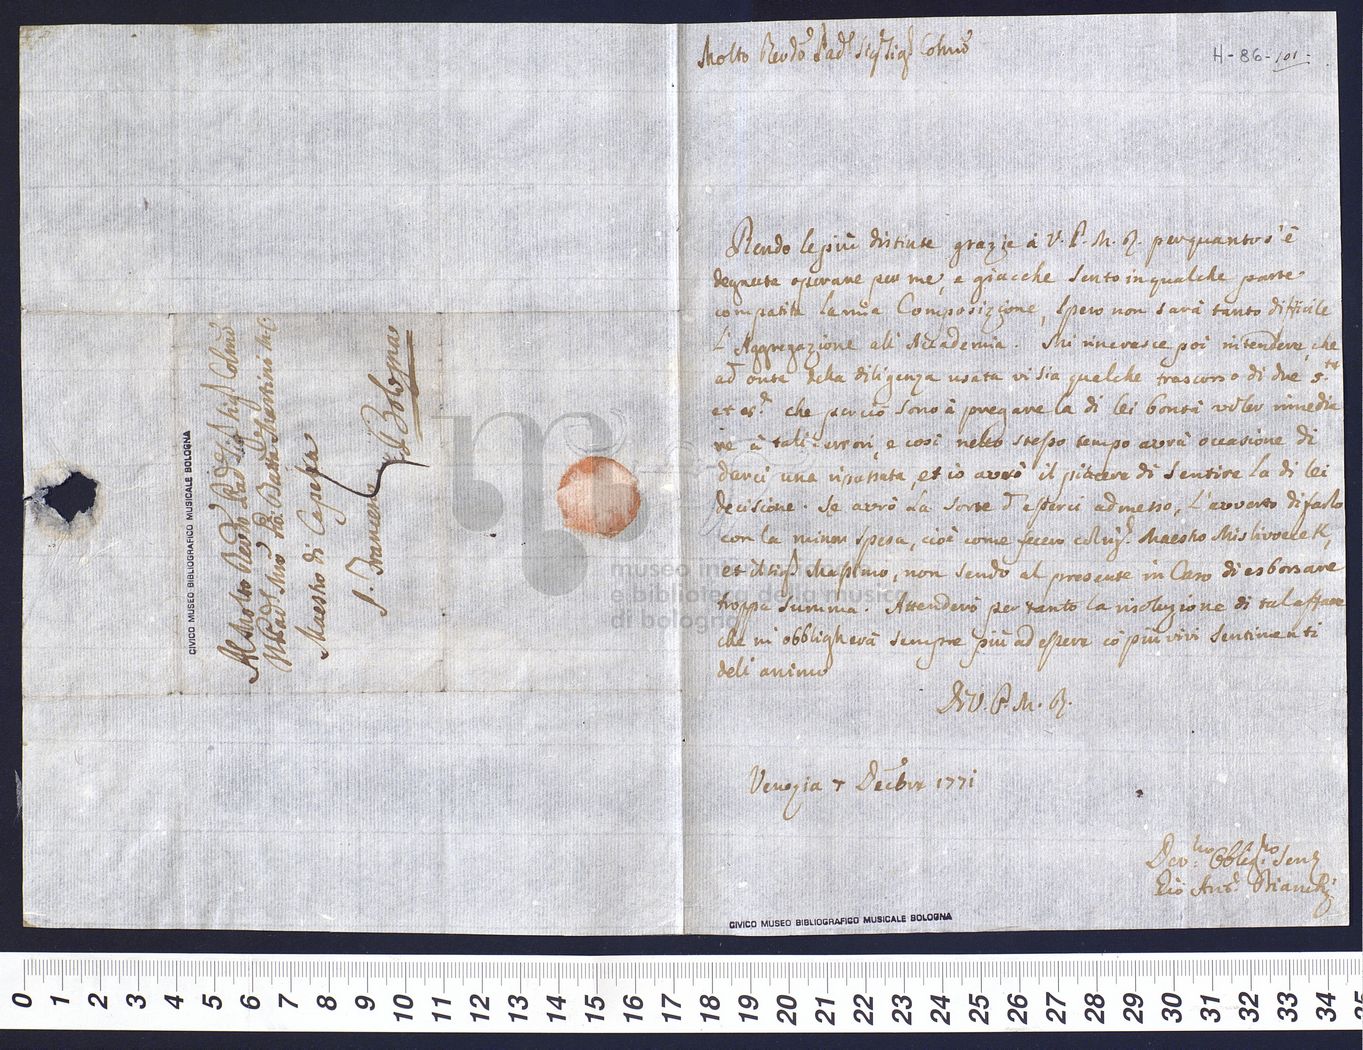 Al Molto Revdo Padre Sig.r Sig.r Colmo
Il Padre Mro Gio. Batta Martini M.C.
Maestro di Capella
S. Francesco
Bologna
CIVICO MUSEO BIBLIOGRAFICO MUSICALE BOLOGNA
Molto Revdo Padre Sig.r Sig.r Colmo
H-86-101-
Rendo le più distinte grazie à V. P. M. R. per quanto s'è
degnata operare per me, e giacche sento in qualche parte
compatita la mia Composizione, spero non sarà tanto difficile
L'Aggregazione all'Accademia. Mi rincresce poi in tendere, che
ad onta della diligenza usata vi sia qualche trascorso di due 5.te
et 8.e che perciò sono à pregare la di lei bontà voler rimedia
re à tali errori, e così nello stesso tempo avrà occasione di
darci una ripassata, et io avrò il piacere di sentire la di lei
decisione. Se avrò La sorte d'esserci admesso, L'avverto di farlo
con la minor spesa, cioè come fecero il Sig.r Maestro Mislivecek,
et il Sig.r Massimo, non sendo al presente in Caso di esborsare
troppa summa. Attenderò per tanto la risoluzione di tal affare
che mi obbligherà sempre più ad essere co più vivi sentimenti
dell animo
Di V. P. M. R.
Venezia 7 Decbre 1771
Dev.mo Obblig.mo Serv
Gio Ant.o Bianchi
CIVICO MUSEO BIBLIOGRAFICO MUSICALE BOLOGNA
museo in
e biblioteca della musica
di bologna
0 1 2 3 4 5 6 7 8 9 10 11 12 13 14 15 16 17 18 19 20 21 22 23 24 25 26 27 28 29 30 31 32 33 34